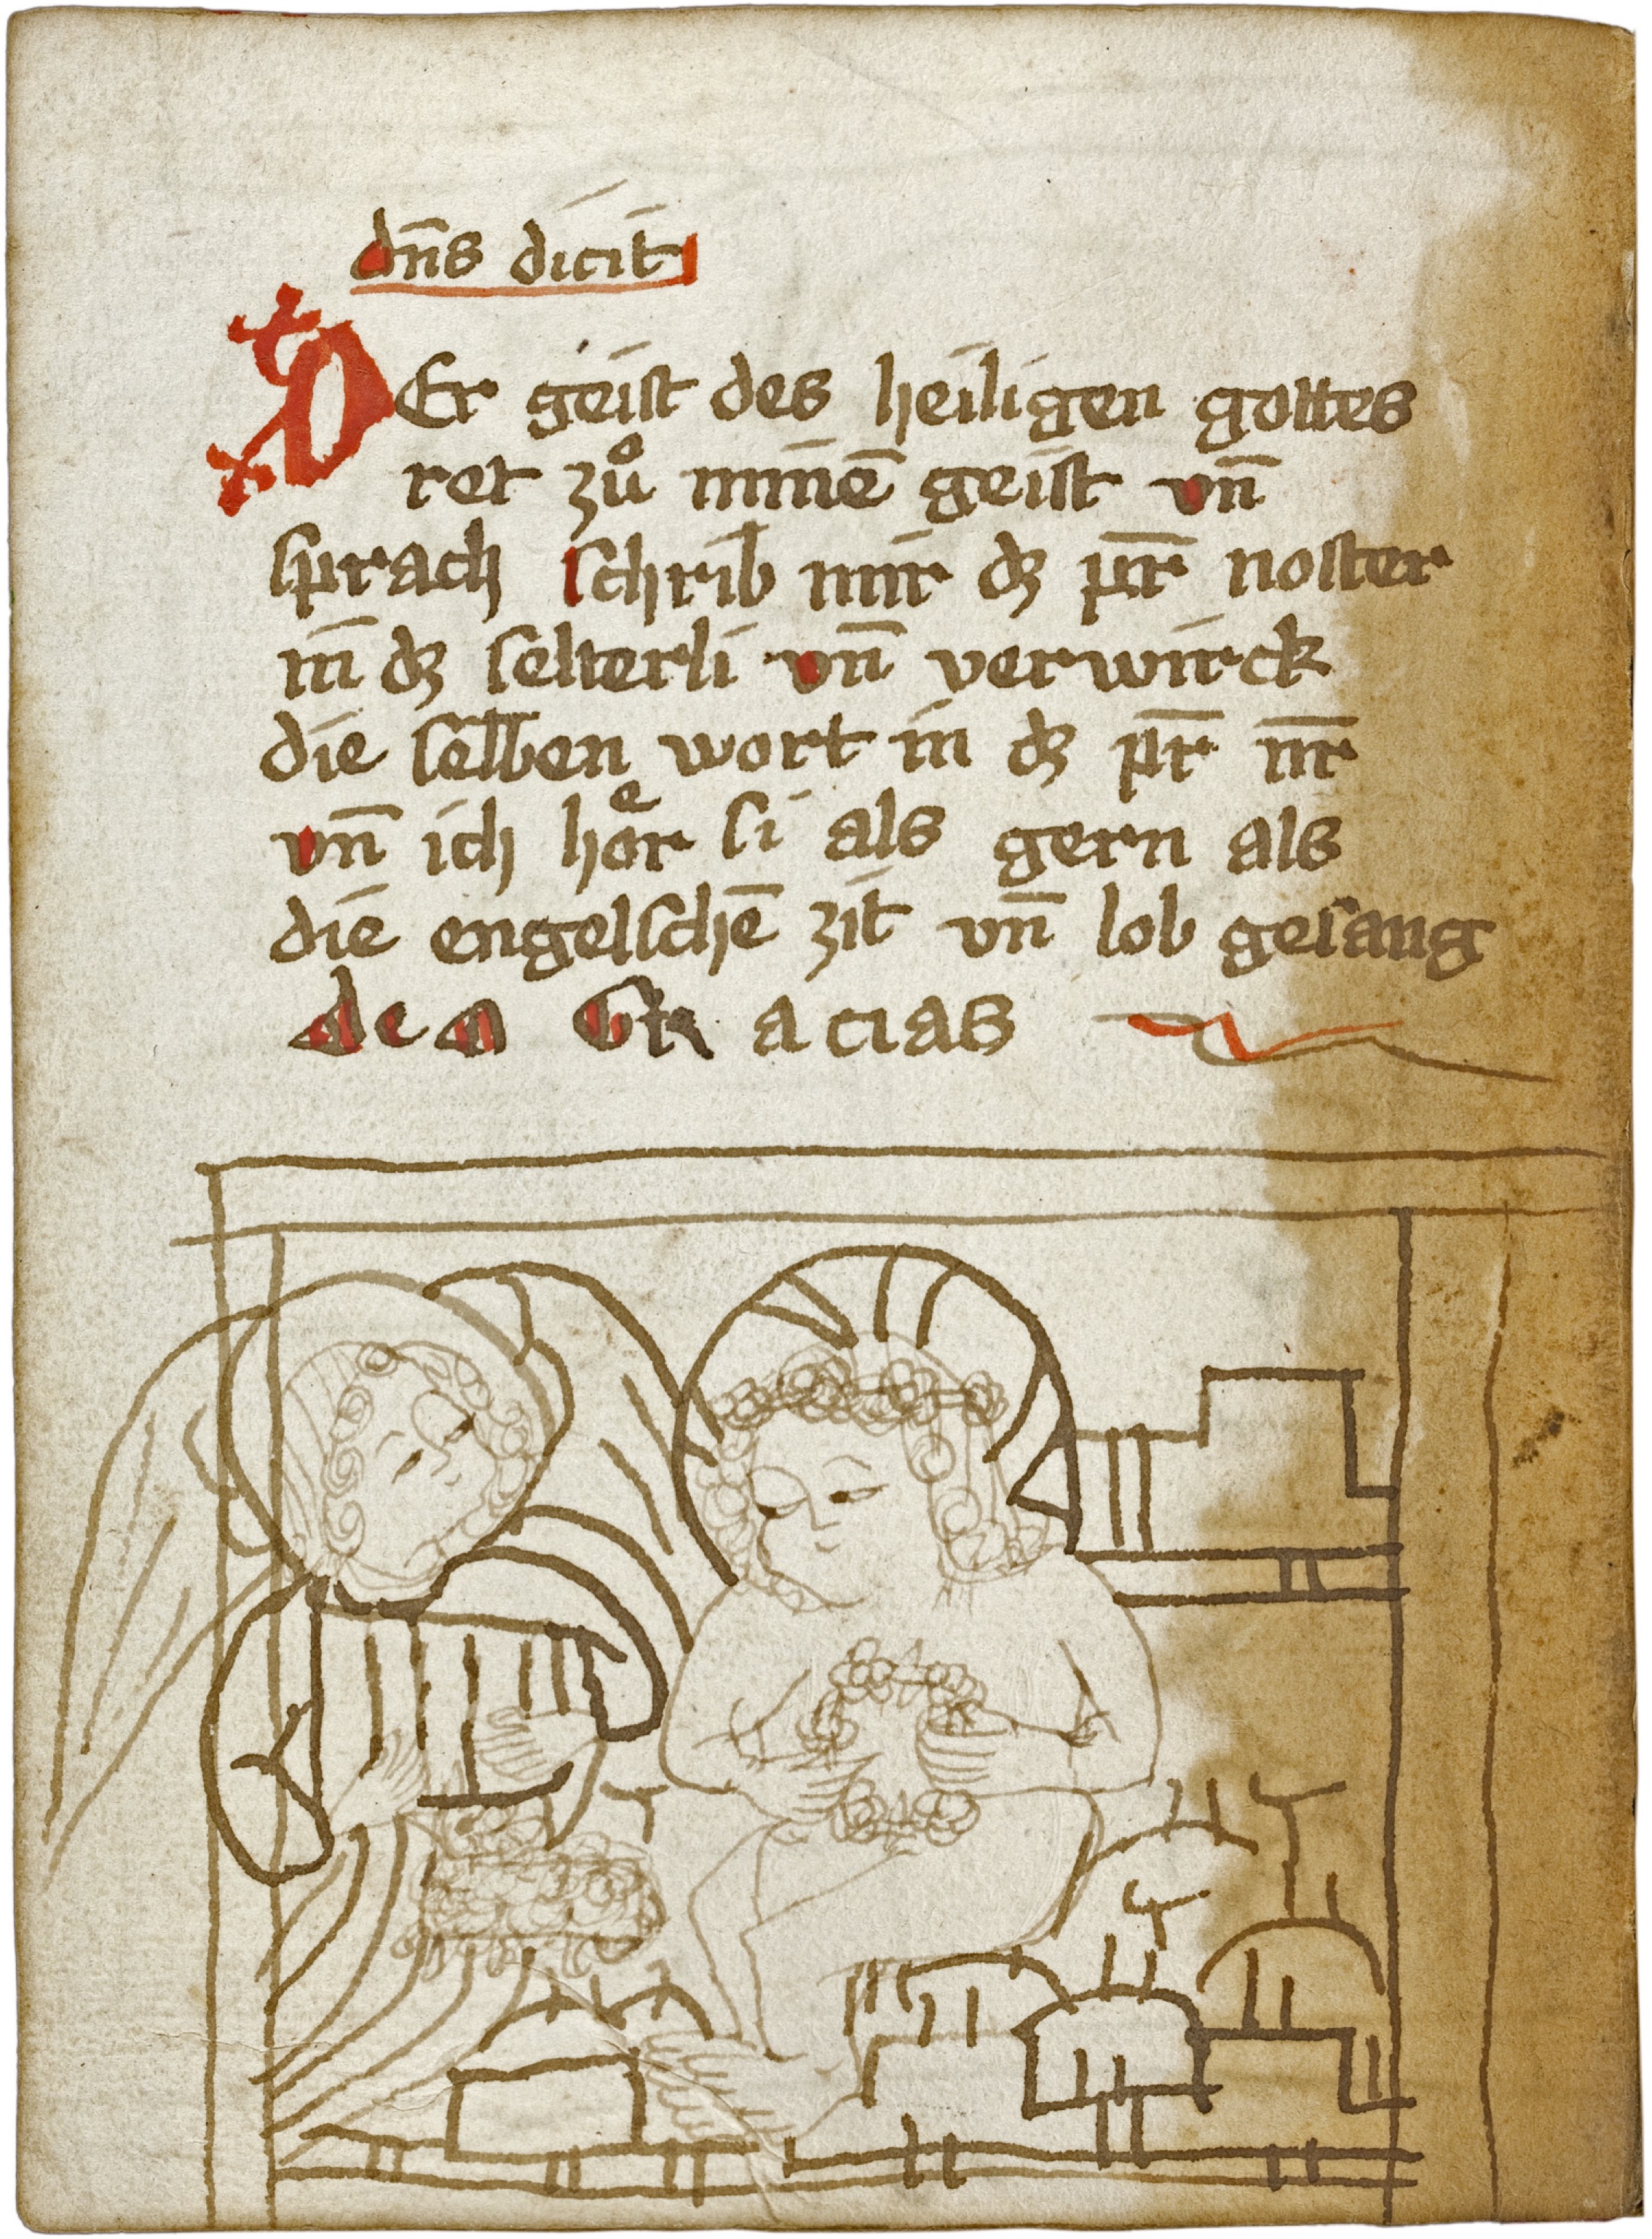 dn̄s dicit
DEr geist des heiligen gottes
ret zuͦ minē geist vn̄
sprach schrib mir dz pr̄ noster
in dz selterli vn̄ verwirck
die selben wort in dz pr̄ nr̄
vn̄ ich hoͤr si als gern als
die engelschē zit vn̄ lob gesang
deo GR acias